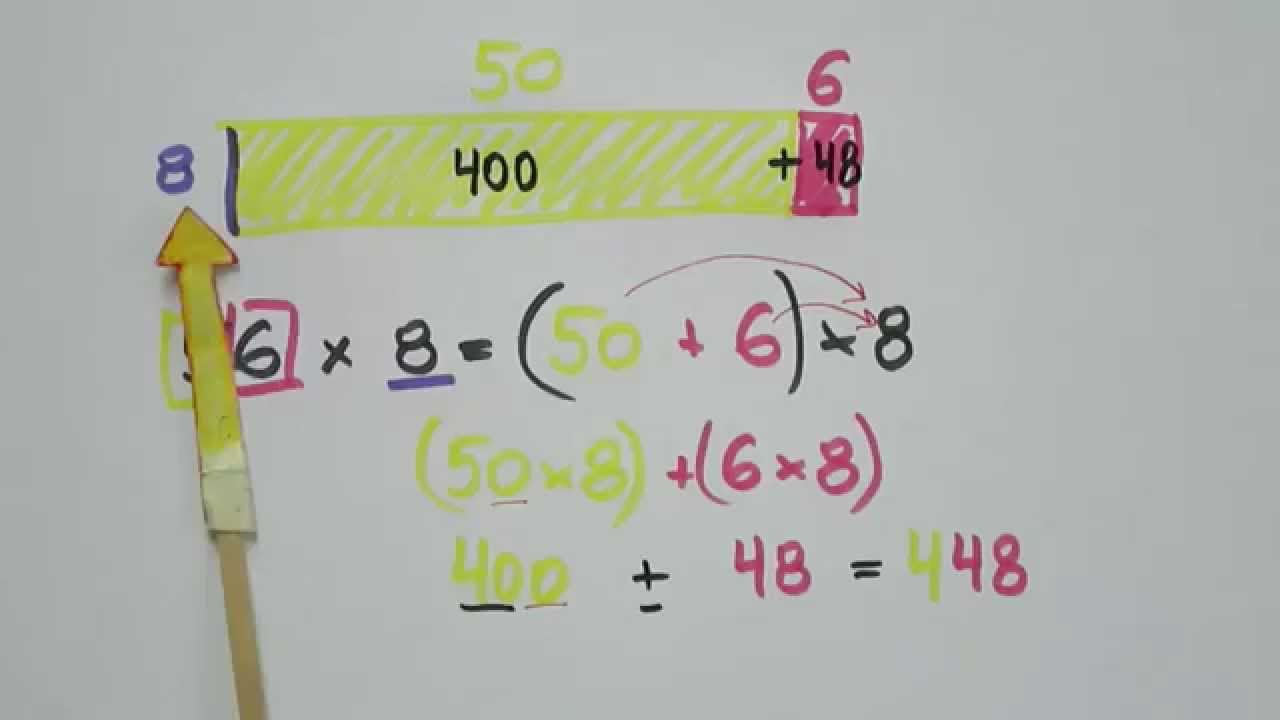 50 6
8 400 + 48
6 × 8 = (50 + 6) × 8
(50 × 8) + (6 × 8)
400 + 48 = 448